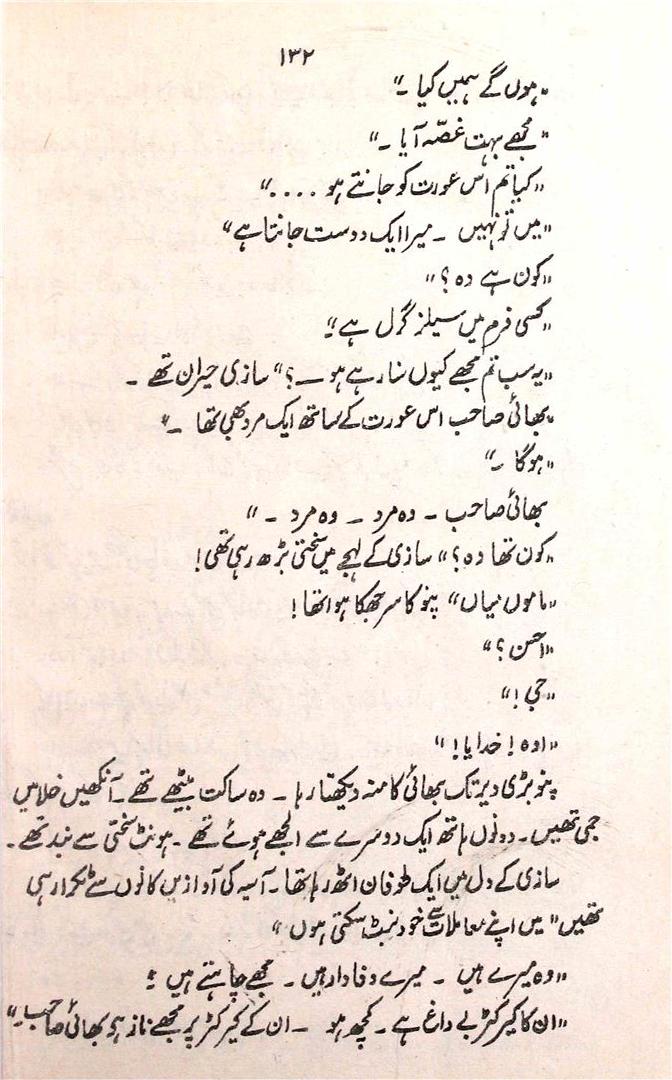 ۱۳۲
"ہوں گے ہمیں کیا ۔"
"مجھے بہت غصّہ آیا ۔"
"کیا تم اس عورت کو جانتے ہو ...."
"میں تو نہیں ۔ میرا ایک دوست جانتا ہے"
"کون ہے وہ؟"
"کسی فرم میں سیلز گرل ہے"
"یہ سب تم مجھے کیوں سنا رہے ہو ۔؟" سازی حیران تھے ۔
"بھائی صاحب اس عورت کے ساتھ ایک مرد بھی تھا ۔"
"ہوگا ۔"
بھائی صاحب ۔ وہ مرد ۔ وہ مرد ۔"
"کون تھا وہ؟" سازی کے لہجے میں سختی بڑھ رہی تھی!
"ماموں میاں" پنو کا سر جھکا ہوا تھا!
"احسن؟"
"جی!"
"اوہ! خدایا!"
پنو بڑی دیر تک بھائی کا منہ دیکھتا رہا ۔ وہ ساکت بیٹھے تھے ۔ آنکھیں خلا میں
جمی تھیں ۔ دونوں ہاتھ ایک دوسرے سے الجھے ہوئے تھے ۔ ہونٹ سختی سے بند تھے ۔
سازی کے دل میں ایک طوفان اٹھ رہا تھا ۔ آسیہ کی آوازیں کانوں سے ٹکرا رہی
تھیں "میں اپنے معاملات سے خود نبٹ سکتی ہوں"
"وہ میرے ہیں ۔ میرے وفادار ہیں ۔ مجھے چاہتے ہیں"
"ان کا کیرکٹر بے داغ ہے ۔ کچھ ہو ۔ ان کے کیرکٹر پر مجھے ناز ہے بھائی صاحب ۔"